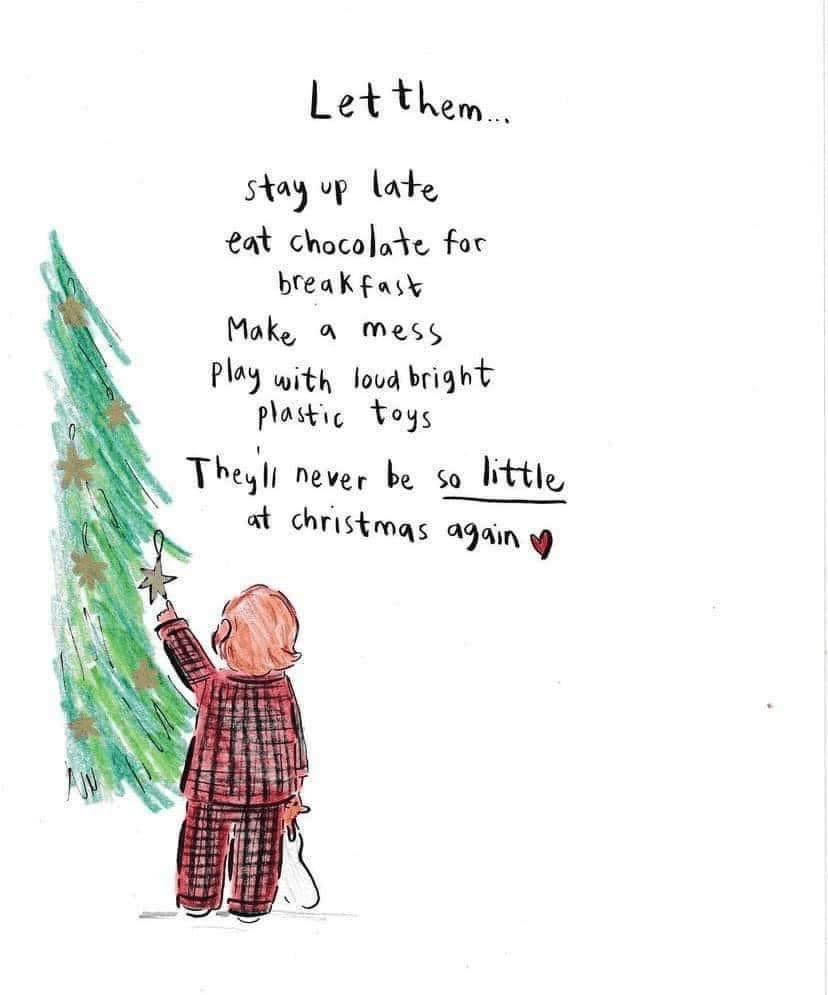 Let them...
stay up late
eat chocolate for
breakfast
Make a mess
Play with loud bright
plastic toys
They'll never be so little
at christmas again